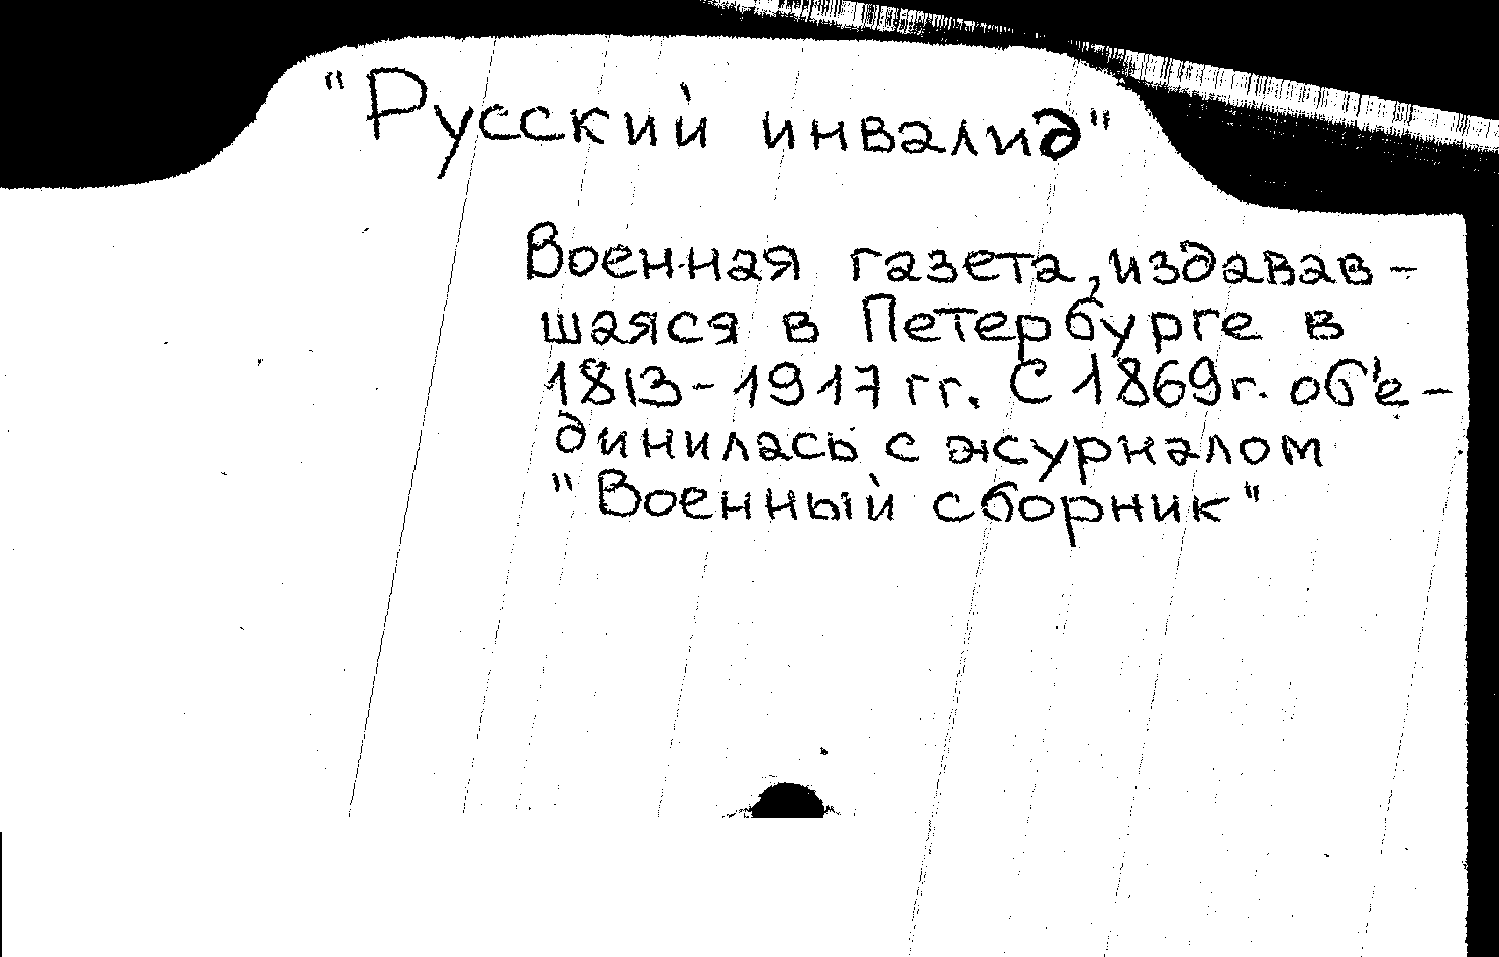 "Русский инвалид"
Военная газета, издавав-
шаяся в Петербурге в
1813-1917 гг. С 1869г. об'е-
динилась с журналом
"Военный сборник"